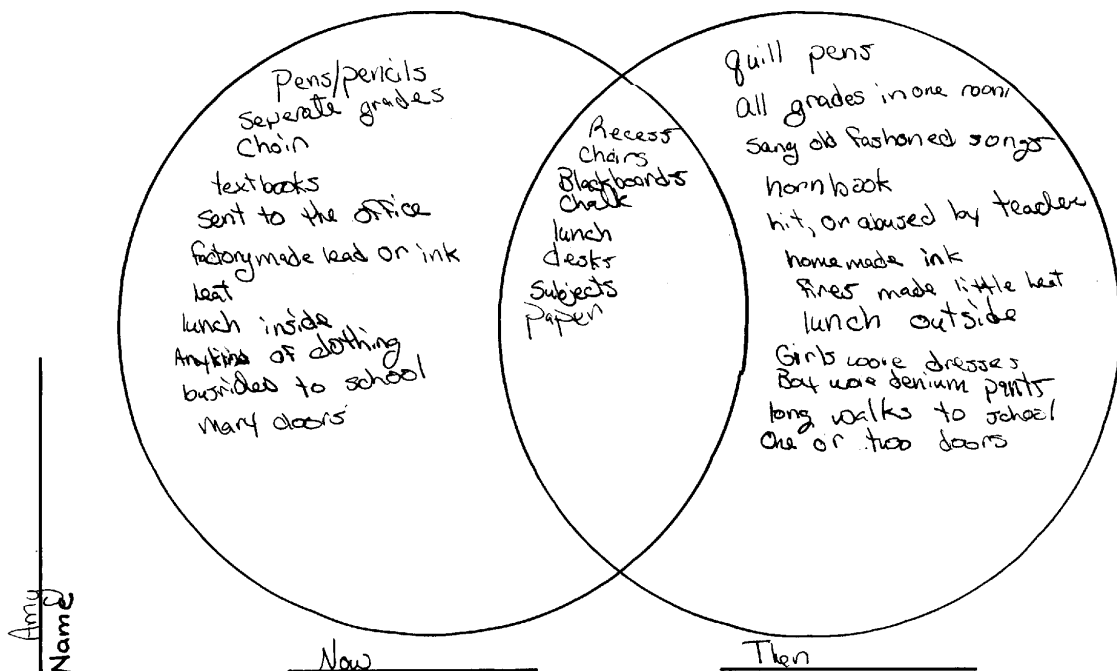 Pens/pencils
Seperate grades
Choir
textbooks
sent to the office
factory made lead or ink
heat
lunch inside
Any kind of clothing
busrides to school
many doors
Recess
Chairs
Blackboards
Chalk
lunch
desks
Subjects
paper
quill pens
all grades in one room
Sang old fashoned songs
hornbook
hit, or abused by teacher
homemade ink
fires made little heat
lunch outside
Girls wore dresses
Boy wore denium pants
long walks to school
One or two doors
Amy
Name
Now
Then